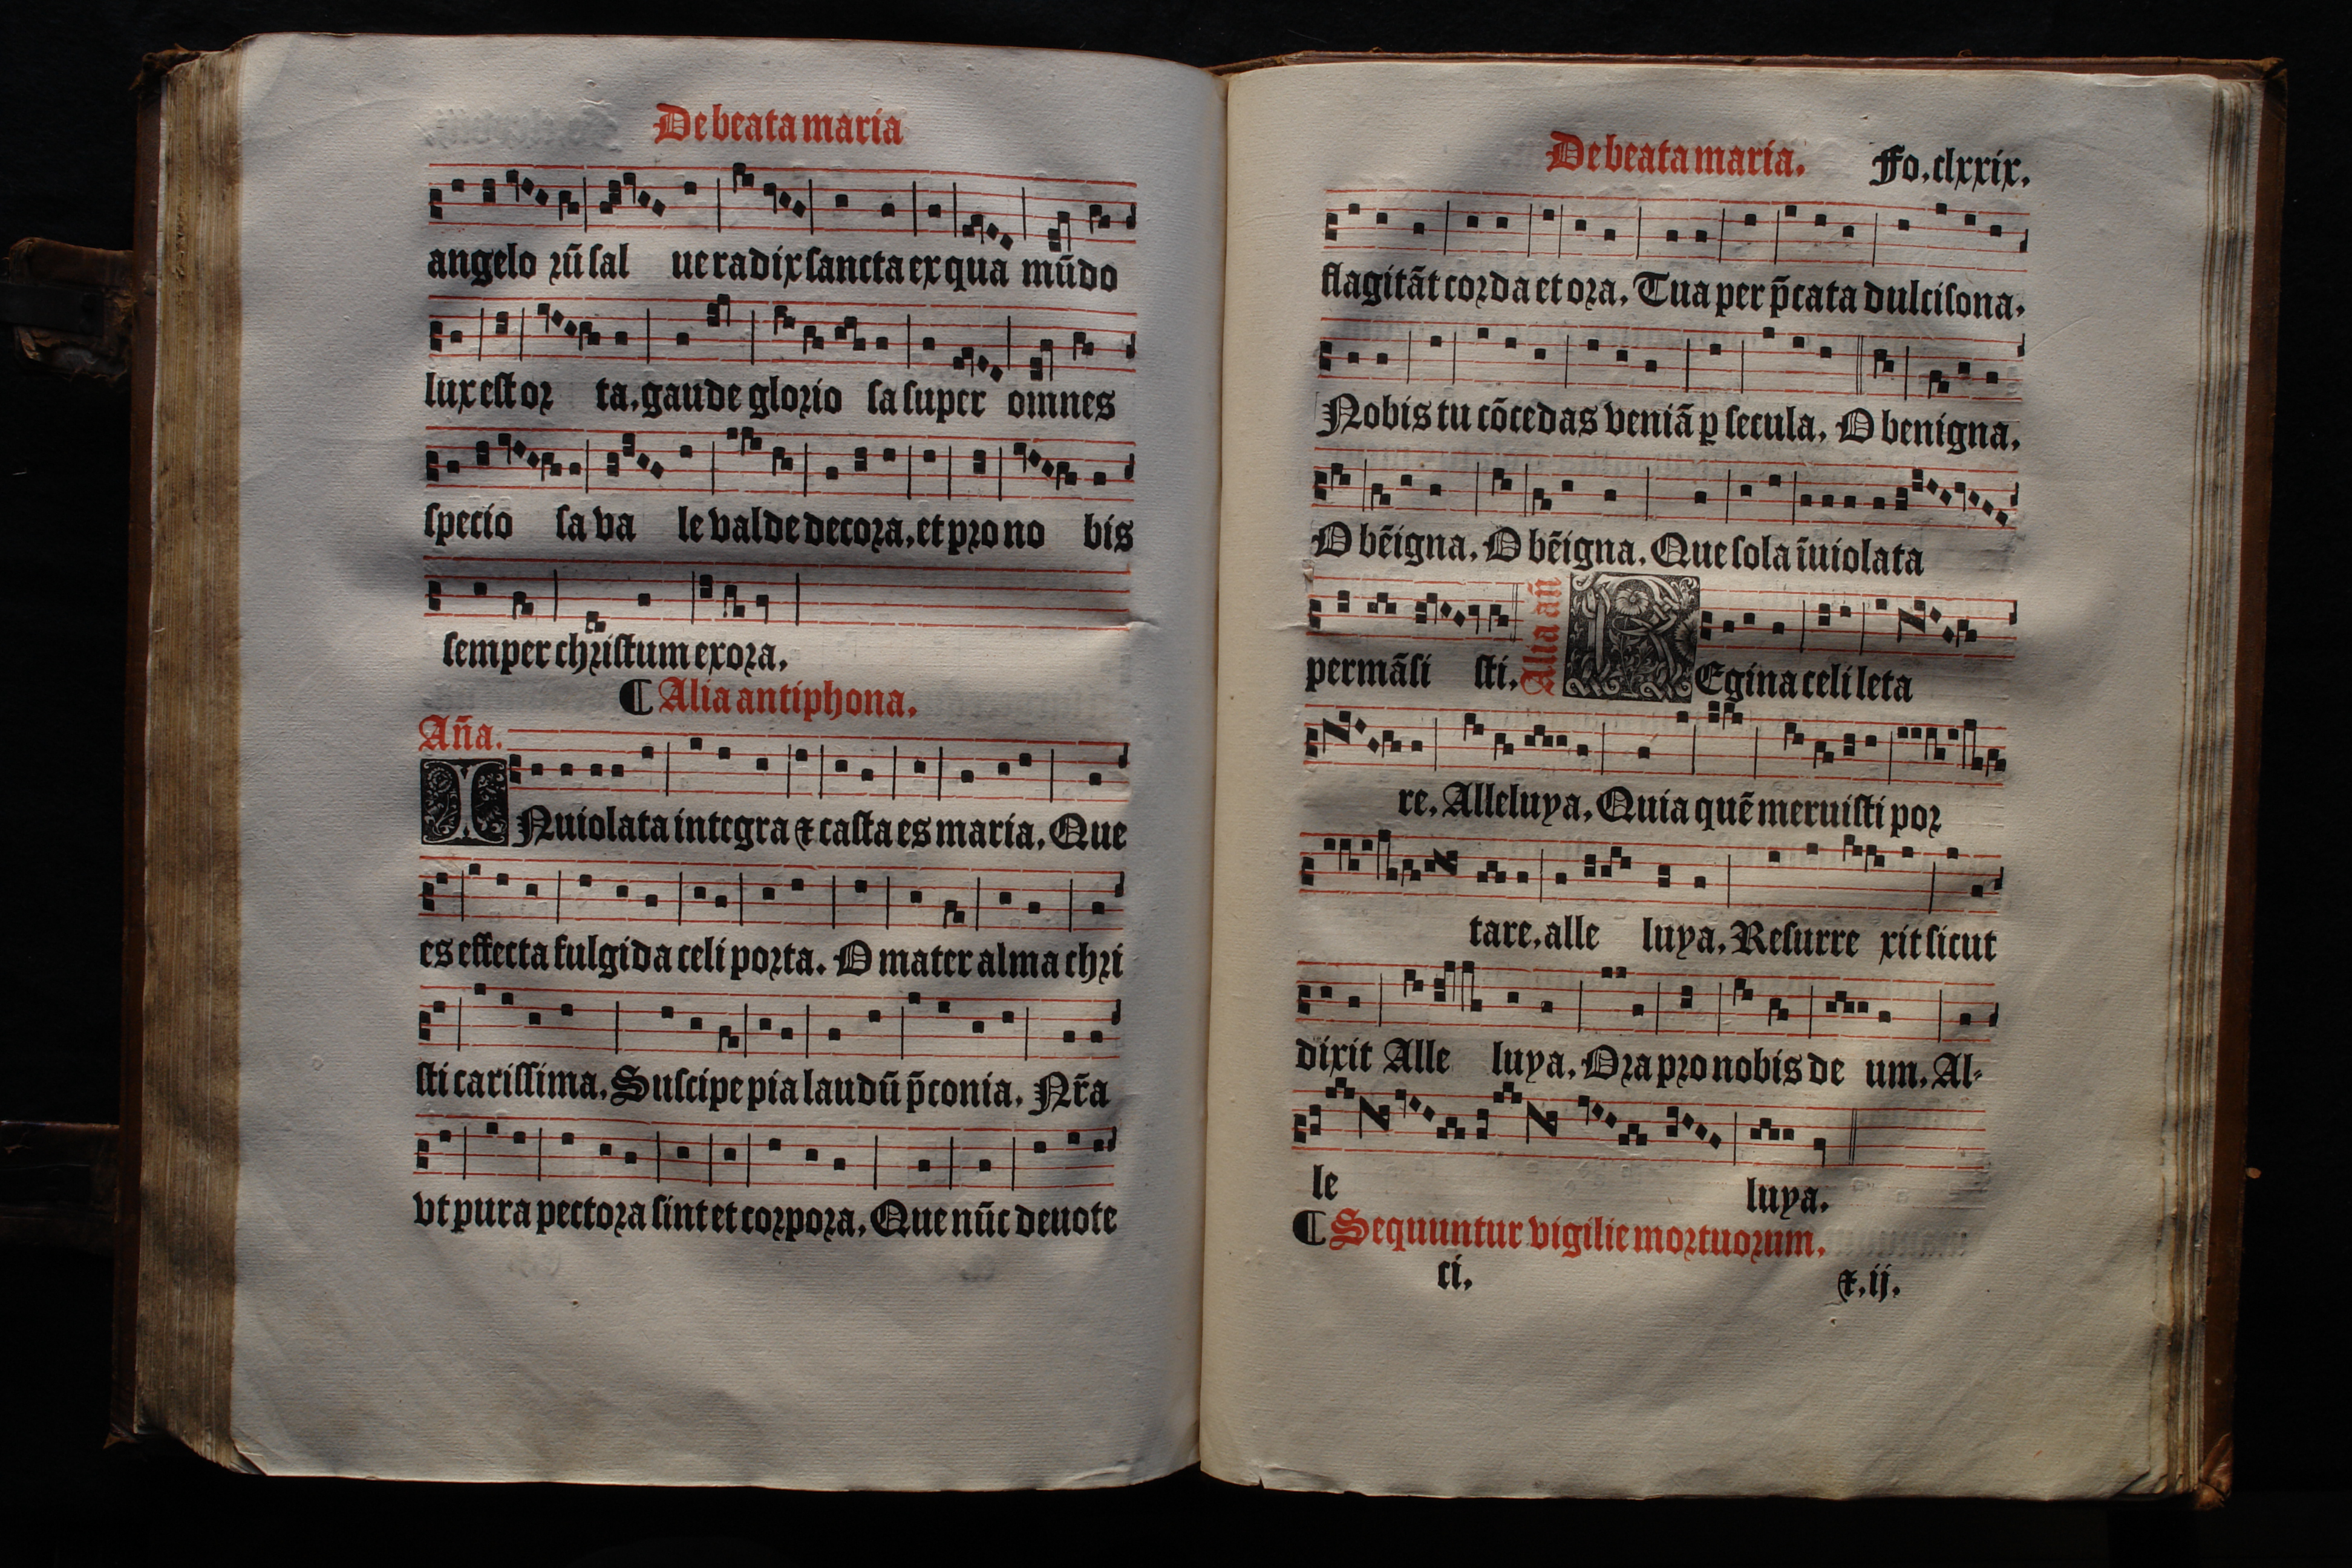 De beata maria
angelo rū sal ue radix sancta ex qua mūdo
lux est or ta. gaude glorio sa super omnes
specio sa va le valde decora. et pro no bis
semper christum exora.
¶ Alia antiphona.
Añа.
INuiolata integra ⁊ casta es maria. Que
es effecta fulgida celi porta. O mater alma chri
sti carissima. Suscipe pia laudū p̄conia. Nr̄a
vt pura pectora sint et corpora. Que nūc deuote
De beata maria. Fo. clxxix.
flagitāt corda et ora. Tua per p̄cata dulcisona.
Nobis tu cōcedas veniā ꝑ secula. O benigna.
O bēigna. O bēigna. Que sola īuiolata
permāsi sti. Alia añ REgina celi leta
re. Alleluya. Quia quē meruisti por
tare. alle luya. Resurre xit sicut
dixit Alle luya. Ora pro nobis de um. Al-
le luya.
¶ Sequuntur vigilie mortuorum.
ci. ⁊. ij.